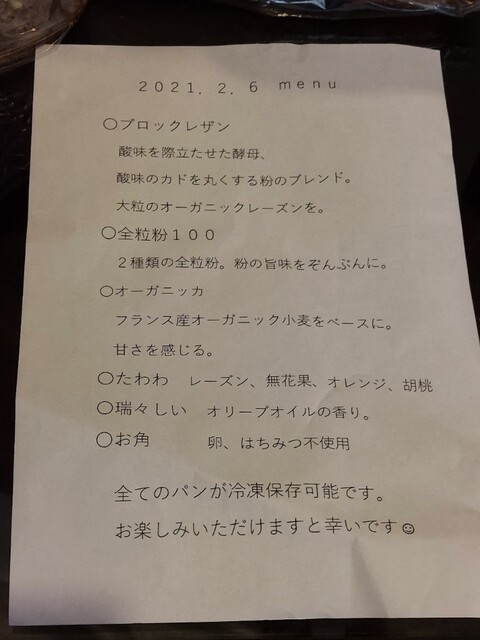 ２０２１．２．６　ｍｅｎｕ
○ブロックレザン
酸味を際立たせた酵母、
酸味のカドを丸くする粉のブレンド。
大粒のオーガニックレーズンを。
○全粒粉１００
２種類の全粒粉。粉の旨味をぞんぶんに。
○オーガニッカ
フランス産オーガニック小麦をベースに。
甘さを感じる。
○たわわ　レーズン、無花果、オレンジ、胡桃
○瑞々しい　オリーブオイルの香り。
○お角　卵、はちみつ不使用
全てのパンが冷凍保存可能です。
お楽しみいただけますと幸いです☺